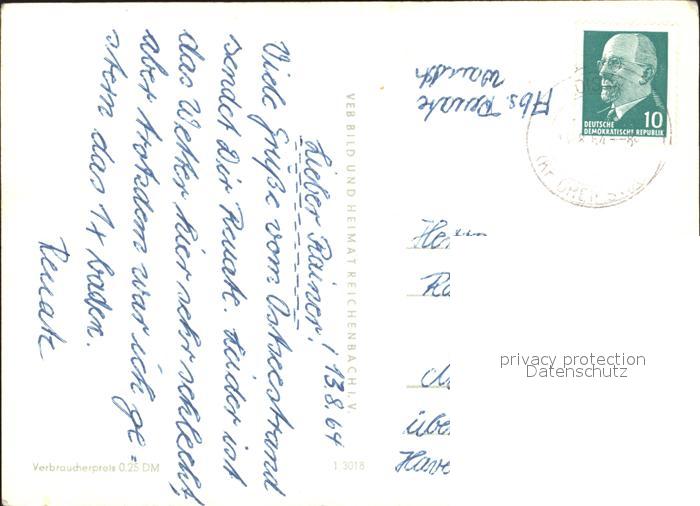 Lieber Rainer! 13.8.64
Viele Grüße vom Ostseestrand
sendet Dir Renate. Leider ist
das Wetter hier sehr schlecht,
aber trotzdem war ich ge=
stern das 1x baden.
Renate
Verbraucherpreis 0,25 DM
VEB BILD UND HEIMAT REICHENBACH I. V.
1 3018
Abs. Renate
DEUTSCHE
DEMOKRATISCHE REPUBLIK
10
über
privacy protection
Datenschutz